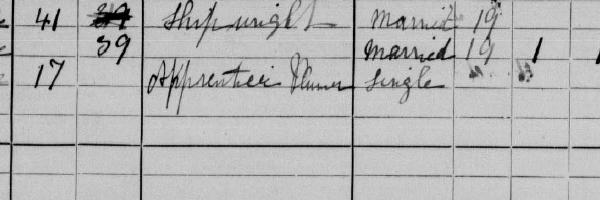 41 Shipwright Married 19
39 Married 19 1 1
17 Apprentice Single